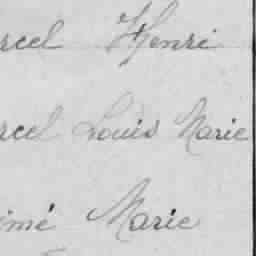 rcel Henri
rcel Louis Marie
imé Marie